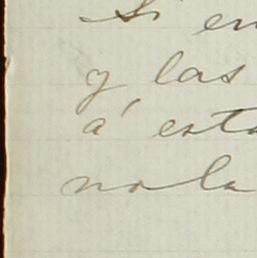 Si en
y las
á esta
no la